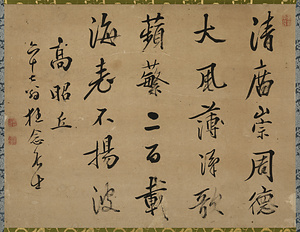 清廟崇周德
大風薄漢歌
蘋蘩二百載
海表不揚波
高昭丘
六十七翁